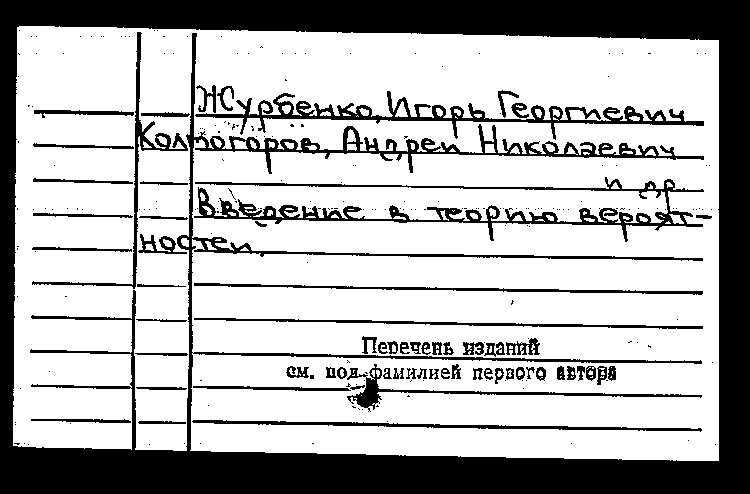 Журбенко, Игорь Георгиевич
Колмогоров, Андрей Николаевич
и др
Введение в теорию вероят-
ностей.
Перечень изданий
см. под фамилией первого автора